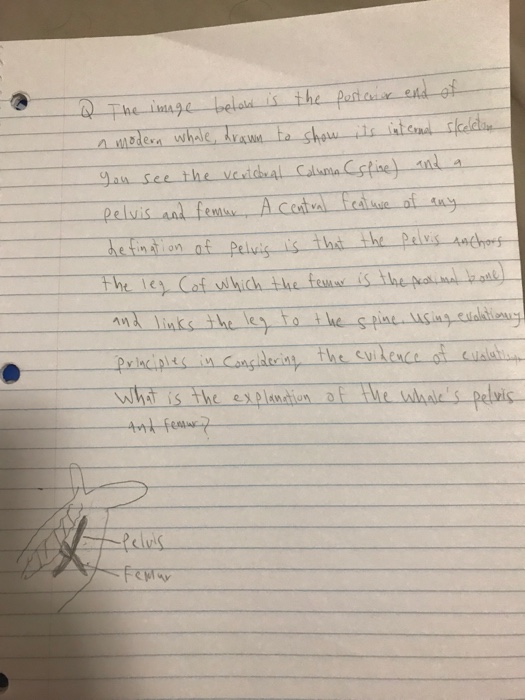 Q The image below is the posterior end of
a modern whale, drawn to show its internal skeleton
you see the vertebral column (spine) and a
pelvis and femur. A central feature of any
defination of pelvis is that the pelvis anchors
the leg (of which the femur is the proximal bone)
and links the leg to the spine. Using evolutionary
principles in considering the evidence of evolution
What is the explanation of the whale's pelvis
and femur?
Pelvis
Femur